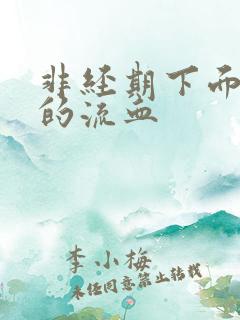 非经期下而
的流血
李小梅
未经同意禁止转载